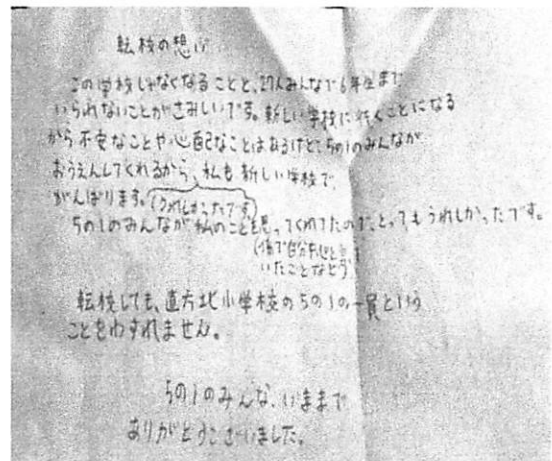 転校の想い
この学校じゃなくなることと、27人みんなで6年生まで
いられないことがさみしいです。新しい学校に行くことになる
から不安なことや心配なことはあるけど、5の1のみんなが
おうえんしてくれるから、私も新しい学校で
がんばります。(うれしかったです)
5の1のみんなが私のことを思ってくれてたので、とってもうれしかったです。
いたことなど
転校しても、直方北小学校の5の1の一員という
ことをわすれません。
5の1のみんな、いままで
ありがとうございました。